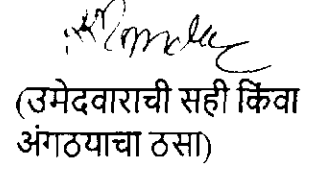 (उमेदवाराची सही किंवा
अंगठयाचा ठसा)